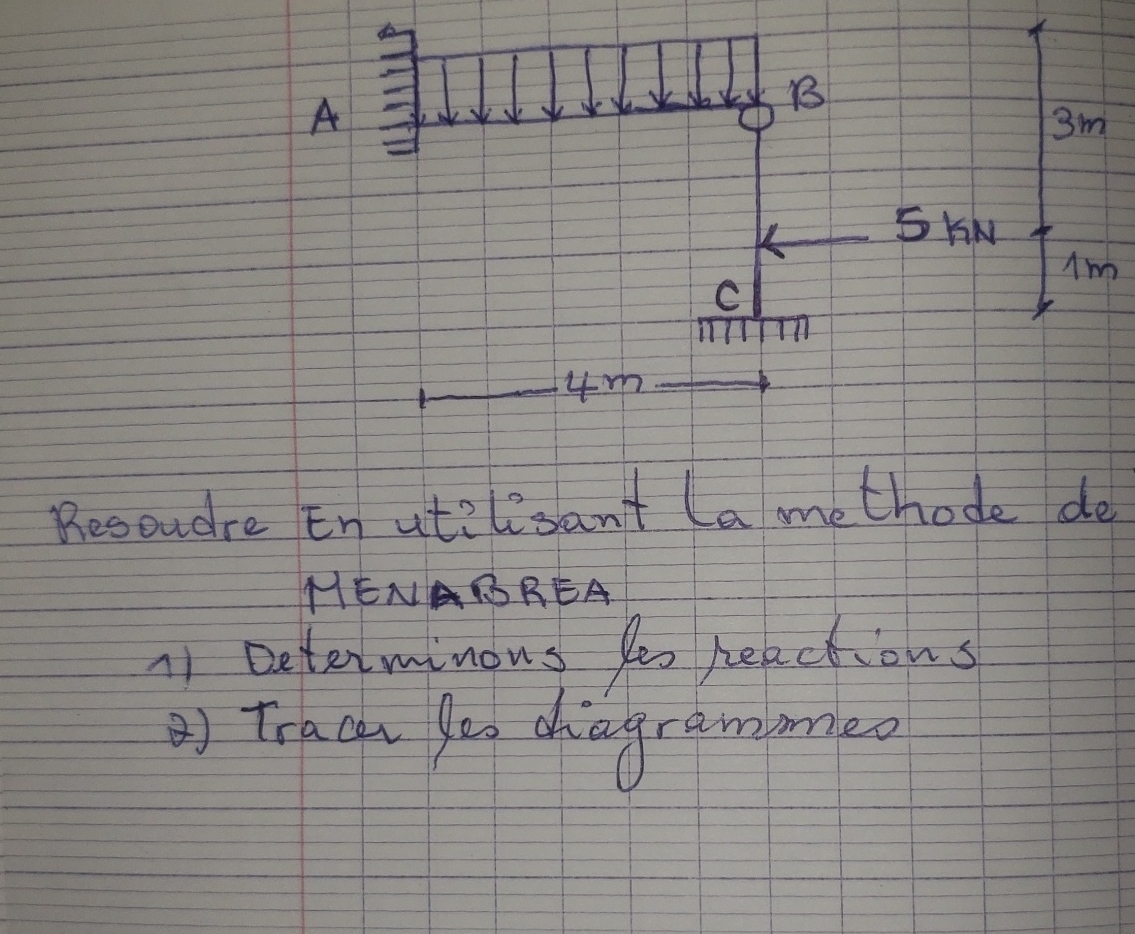 A
B
3m
5 KN
1m
C
4m
Resoudre En utilisant la methode de
MENABREA
1) Determinons les reactions
2) Tracer les diagrammes